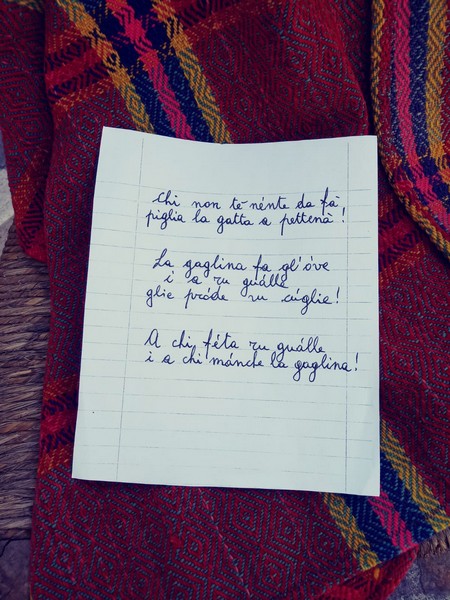 Chi non tè nénte da fà
piglia la gatta a pettenà!
La gaglina fa gl'óve
i a ru guálle
glie próde ru cúglie!
A chi féta ru guálle
i a chi mánche la gaglina!